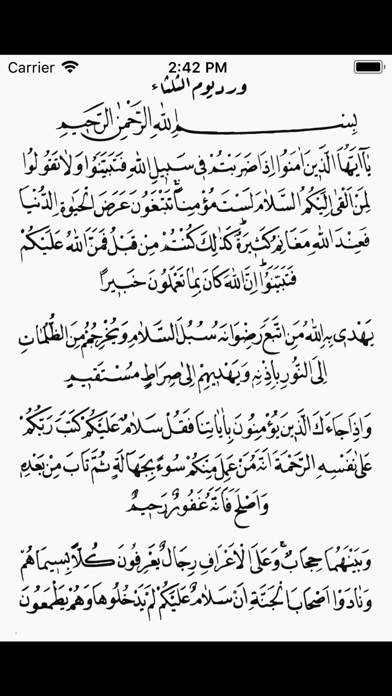 Carrier 2:42 PM
ورد يوم الثلثاء
بِسْمِ اللهِ الرَّحْمٰنِ الرَّحِيمِ
يَاآيُّهَا الَّذِينَ اٰمَنُوا اِذَا ضَرَبْتُمْ فِي سَبِيلِ اللهِ فَتَبَيَّنُوا وَلَا تَقُولُوا
لِمَنْ اَلْقٰى اِلَيْكُمُ السَّلَامَ لَسْتَ مُؤْمِنًا تَبْتَغُونَ عَرَضَ الْحَيٰوةِ الدُّنْيَا
فَعِنْدَ اللهِ مَغَانِمُ كَثِيرَةٌ كَذٰلِكَ كُنْتُمْ مِنْ قَبْلُ فَمَنَّ اللهُ عَلَيْكُمْ
فَتَبَيَّنُوا اِنَّ اللهَ كَانَ بِمَا تَعْمَلُونَ خَبِيرًا
يَهْدِي بِهِ اللهُ مَنِ اتَّبَعَ رِضْوَانَهُ سُبُلَ السَّلَامِ وَيُخْرِجُهُمْ مِنَ الظُّلُمَاتِ
اِلَى النُّورِ بِاِذْنِهِ وَيَهْدِيهِمْ اِلٰى صِرَاطٍ مُسْتَقِيمٍ
وَاِذَا جَاءَكَ الَّذِينَ يُؤْمِنُونَ بِاٰيَاتِنَا فَقُلْ سَلَامٌ عَلَيْكُمْ كَتَبَ رَبُّكُمْ
عَلٰى نَفْسِهِ الرَّحْمَةَ اَنَّهُ مَنْ عَمِلَ مِنْكُمْ سُوءً بِجَهَالَةٍ ثُمَّ تَابَ مِنْ بَعْدِهِ
وَاَصْلَحَ فَاَنَّهُ غَفُورٌ رَحِيمٌ
وَبَيْنَهُمَا حِجَابٌ وَعَلَى الْاَعْرَافِ رِجَالٌ يَعْرِفُونَ كُلًّا بِسِيمَاهُمْ
وَنَادَوْا اَصْحَابَ الْجَنَّةِ اَنْ سَلَامٌ عَلَيْكُمْ لَمْ يَدْخُلُوهَا وَهُمْ يَطْمَعُونَ